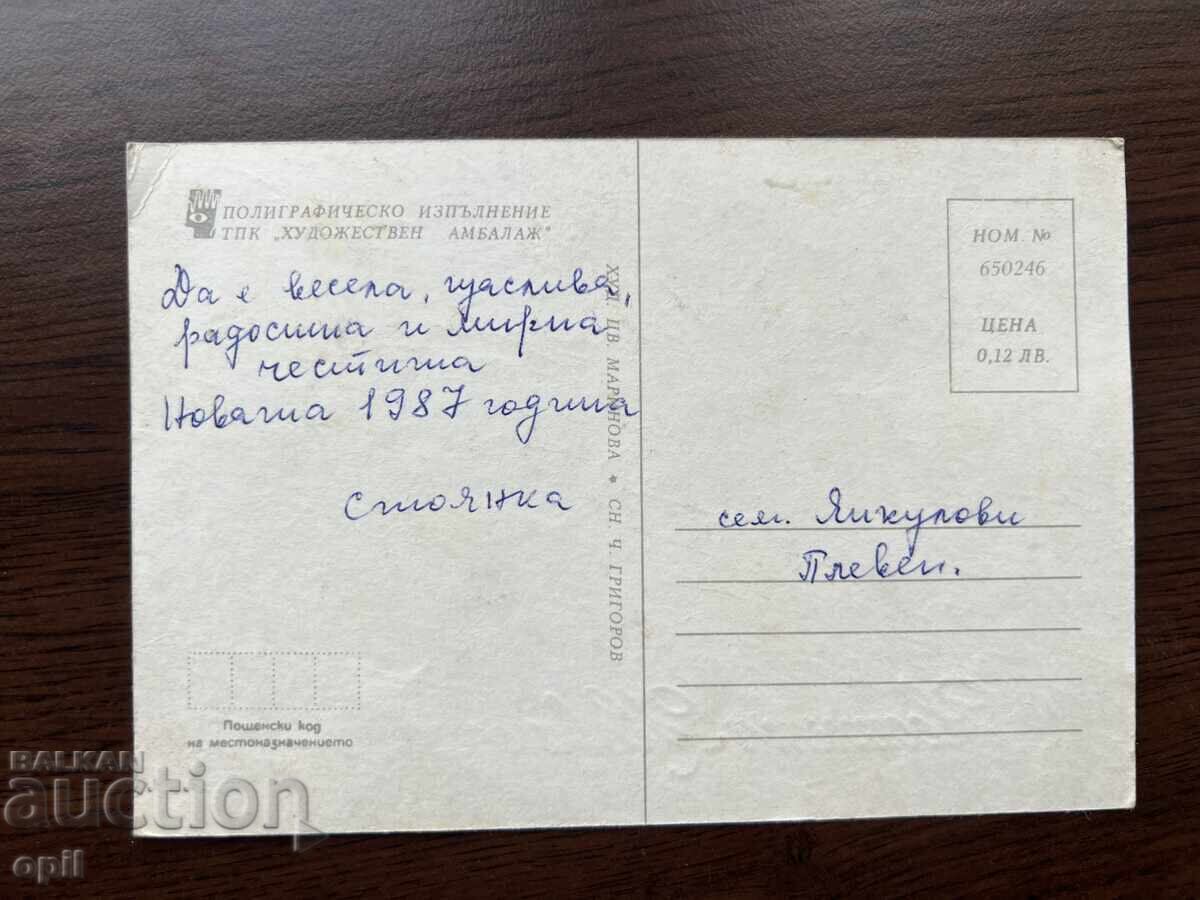 ПОЛИГРАФИЧЕСКО ИЗПЪЛНЕНИЕ
ТПК „ХУДОЖЕСТВЕН АМБАЛАЖ"
Да е весела, щаслива,
радостна и мирна
честитна
Новатна 1987 година
Стоянка
Пощенски код
на местоназначението
ХУД. ЦВ. МАРИНОВА * СН. Ч. ГРИГОРОВ
НОМ. №
650246
ЦЕНА
0,12 ЛВ.
сем.
Плевен.
BALKAN
auction
opil